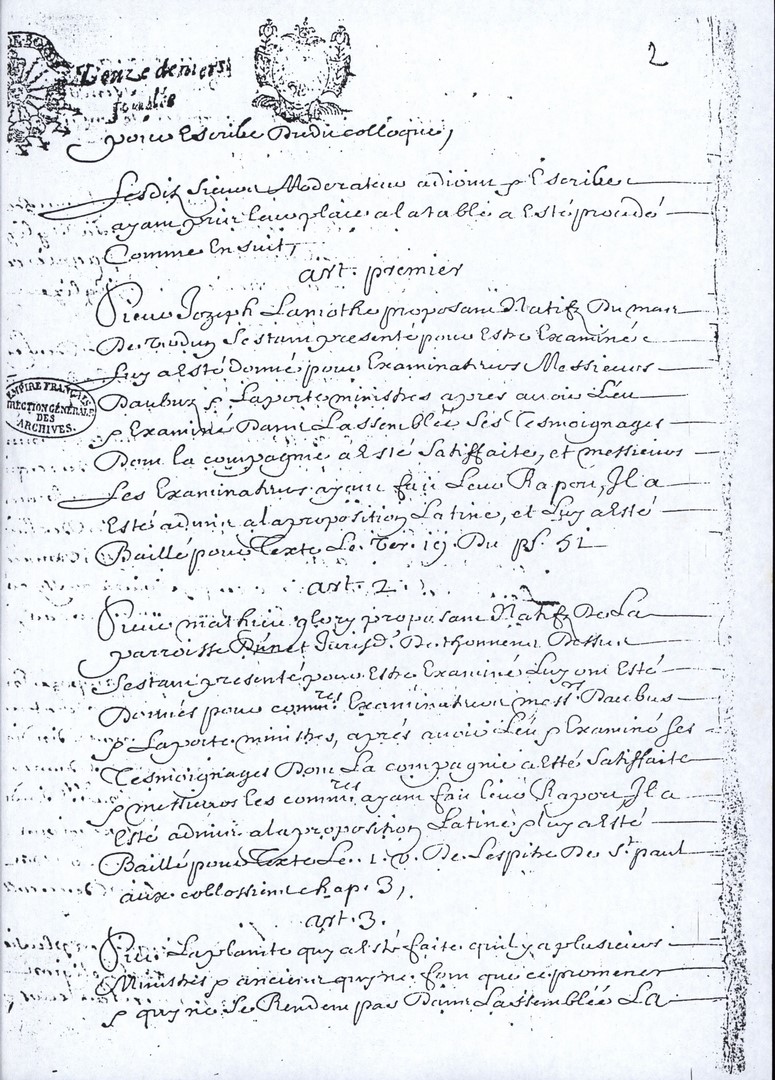 2
Feuille
pour Escribe Dudit colloque,
Lesdits Sieurs Moderateur adioint & Escribe
ayant pris leur place a la table a Esté procedé
Comme En suit,
art. premier
Sieur Joseph Lamothe proposant Natif Du mas
De Se estant presenté pour Estre Examiné
Luy a Esté Donné pour Examinateurs Messieurs
Daubus & Laporte ministres apres avoir Leu
& Examiné Dans Lassemblée Ses Tesmoignages
Dont la compagnie a Esté Satisfaite, et messieurs
Les Examinateurs ayant fait Leur Raport, Il a
Esté admis a la proposition Latine, et Luy a Esté
Baillé pour Texte Le. Ver. 19. Du ps. 51
art. 2.
Sieur mathieu glory proposant Natif De La
parroisse Jurisd. De thonneins Dessus
Sestant presenté pour Estre Examiné Luy ont Esté
Donnés pour commres Examinateurs messrs Daubus
& Laporte ministres, aprés avoir Leu & Examiné ses
Tesmoignages Dont La compagnie a Esté Satisffaite
& messieurs les commres ayant fait leur Raport Il a
Esté admis a la proposition Latine & luy a Esté
Baillé pour Texte Le. 1. v. De Lespitre De St. paul
aux collossiens chap. 3,
art. 3.
Sur La plainte quy a Esté faite quil y a plusieurs
Ministres & anciens quy ne font que ce promener
& quy ne Se Rendent pas Dans Lassemblée La
EMPIRE FRANÇAIS
DIRECTION GÉNÉRALE
DES
ARCHIVES.